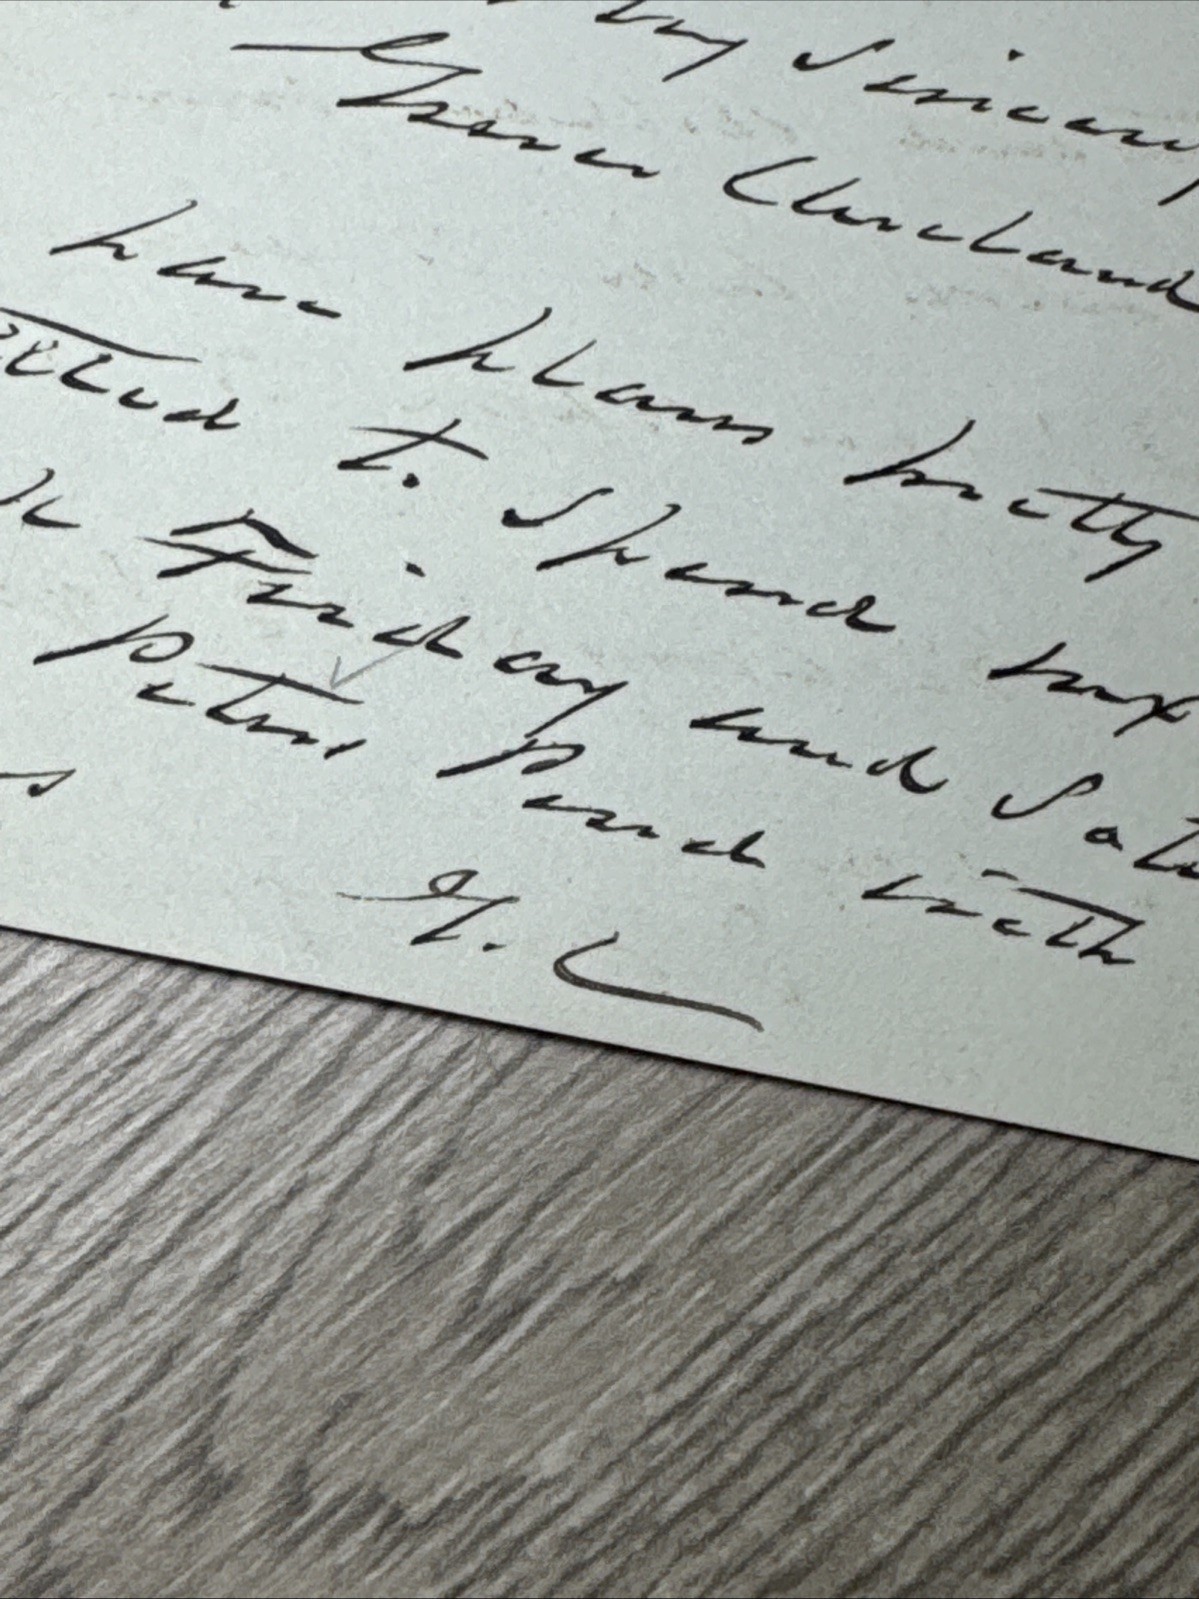 Very Sincerely
Grover Cleveland
have plans pretty
settled to spend next
Friday and Satu
Peters Pond with
G. C.